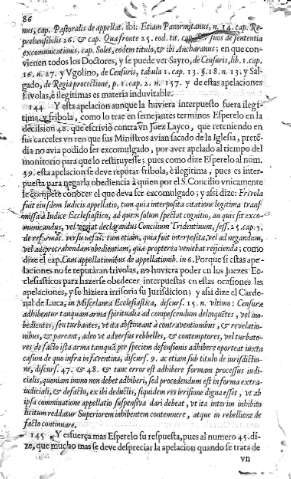 86
nus, cap. Pastoralis de appellat. ibi: Etiam Panormitanus, n. 14. cap. Re-
prehensibilis 26. & cap. Quæ fronte 25. eod. tit. cap. suos de sententia
excommunicationis, cap. Solet, eodem titulo, & ibi Ancharanus; en que con-
vienen todos los Doctores, y se puede ver Sayro, de Censuris, lib. 1. cap.
16. n. 27. y Vgolino, de Censuris, tabula 1. cap. 13. §. 18. n. 13. y Sal-
gado, de Regia protectione, p. 1. cap. 2. n. 157. y de estas apelaciones
frivolas, è ilegitimas es materia indubitable.
144 Y esta apelacion aunque la huviera interpuesto fuera ilegi-
tima, y fribola, como lo trae en semejantes terminos Esperelo en la
decission 48. que escrivió contra vn Juez Layco, que reteniendo en
sus carceles vn reo que sus Ministros avian sacado de la Iglesia, preten-
dia no avia podido ser excomulgado, por aver apelado al tiempo del
monitorio para que lo restituyesse; pues como dize Esperelo al nom.
39. esta apelacion se deve reputar fribola, è ilegitima, pues es inter-
puesta para negar la obediencia à quien por el S. Concilio vnicamente
le compete conocer el que deva ser excomulgado; y assi dize: Frivola
fuit eiusdem Iudicis appellatio, tum quia interposita citatione legitima trans-
missa à Iudice Ecclesiastico, ad quem solum spectat cognitio, an quis sit exco-
municandus, vel negiat declarandus Concilium Tridentinum, sess. 25. cap. 3.
de reformat. versic. nefas: tum etiam, quia fuit interposita, vel ad negandam,
vel ad procrastinandam obedientiam, quia propterea veniebat reijcienda; como
dize el cap. Cum appellationibus de appellationib. in 6. Porque si estas ape-
laciones no se reputàran frivolas, no huviera poder en los Juezes Ec-
clesiasticos para hazerse obedecer interpuestas en ellas ocasiones las
apelaciones, y se hiziera irrisoria su Jurisdicion; y assi dize el Carde-
nal de Luca, in Miscelanea Ecclesiastica, discurs. 15. n. vltimo: Censuræ
adhibentur tanquam arma spiritualia ad compescendum delinquētes, vel ino-
bedientes, seu turbantes, vt eis abstineant à contraventionibus, & revelatio-
nibus, & pareant, adeo vt adversus rebelles, & contemptores, vel turbato-
res de facto ista arma tanquā per speciem defensionis adhibere oporteat iuxta
casum de quo infra in Faventina, discurs. 9. ac etiam sub titulo de iurisdictio-
ne, discurs. 47. & 48. & tunc error est adhibere formam processus iudi-
cialis, quoniam immo non debet adhiberi, sed procedendum est in forma extra-
iudiciali, & de facto, ex ibi deductis, siquidem res irrisione digna esset, vt ab
ipsa comminatione appellatio suspensiva dari debeat, vt ita interim inhibito
licitum reddatur Superiorem inhibentem contemnere, atque in rebellione de
facto continuare.
145 Y esfuerça mas Esperelo su respuesta, pues al numero 45. di-
ze, que mucho mas se deve despreciar la apelacion quando se trata de
vn